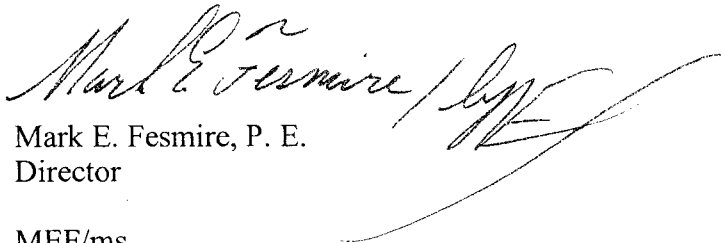 Mark E Fesmire / by
Mark E. Fesmire, P. E.
Director
MEF/ms